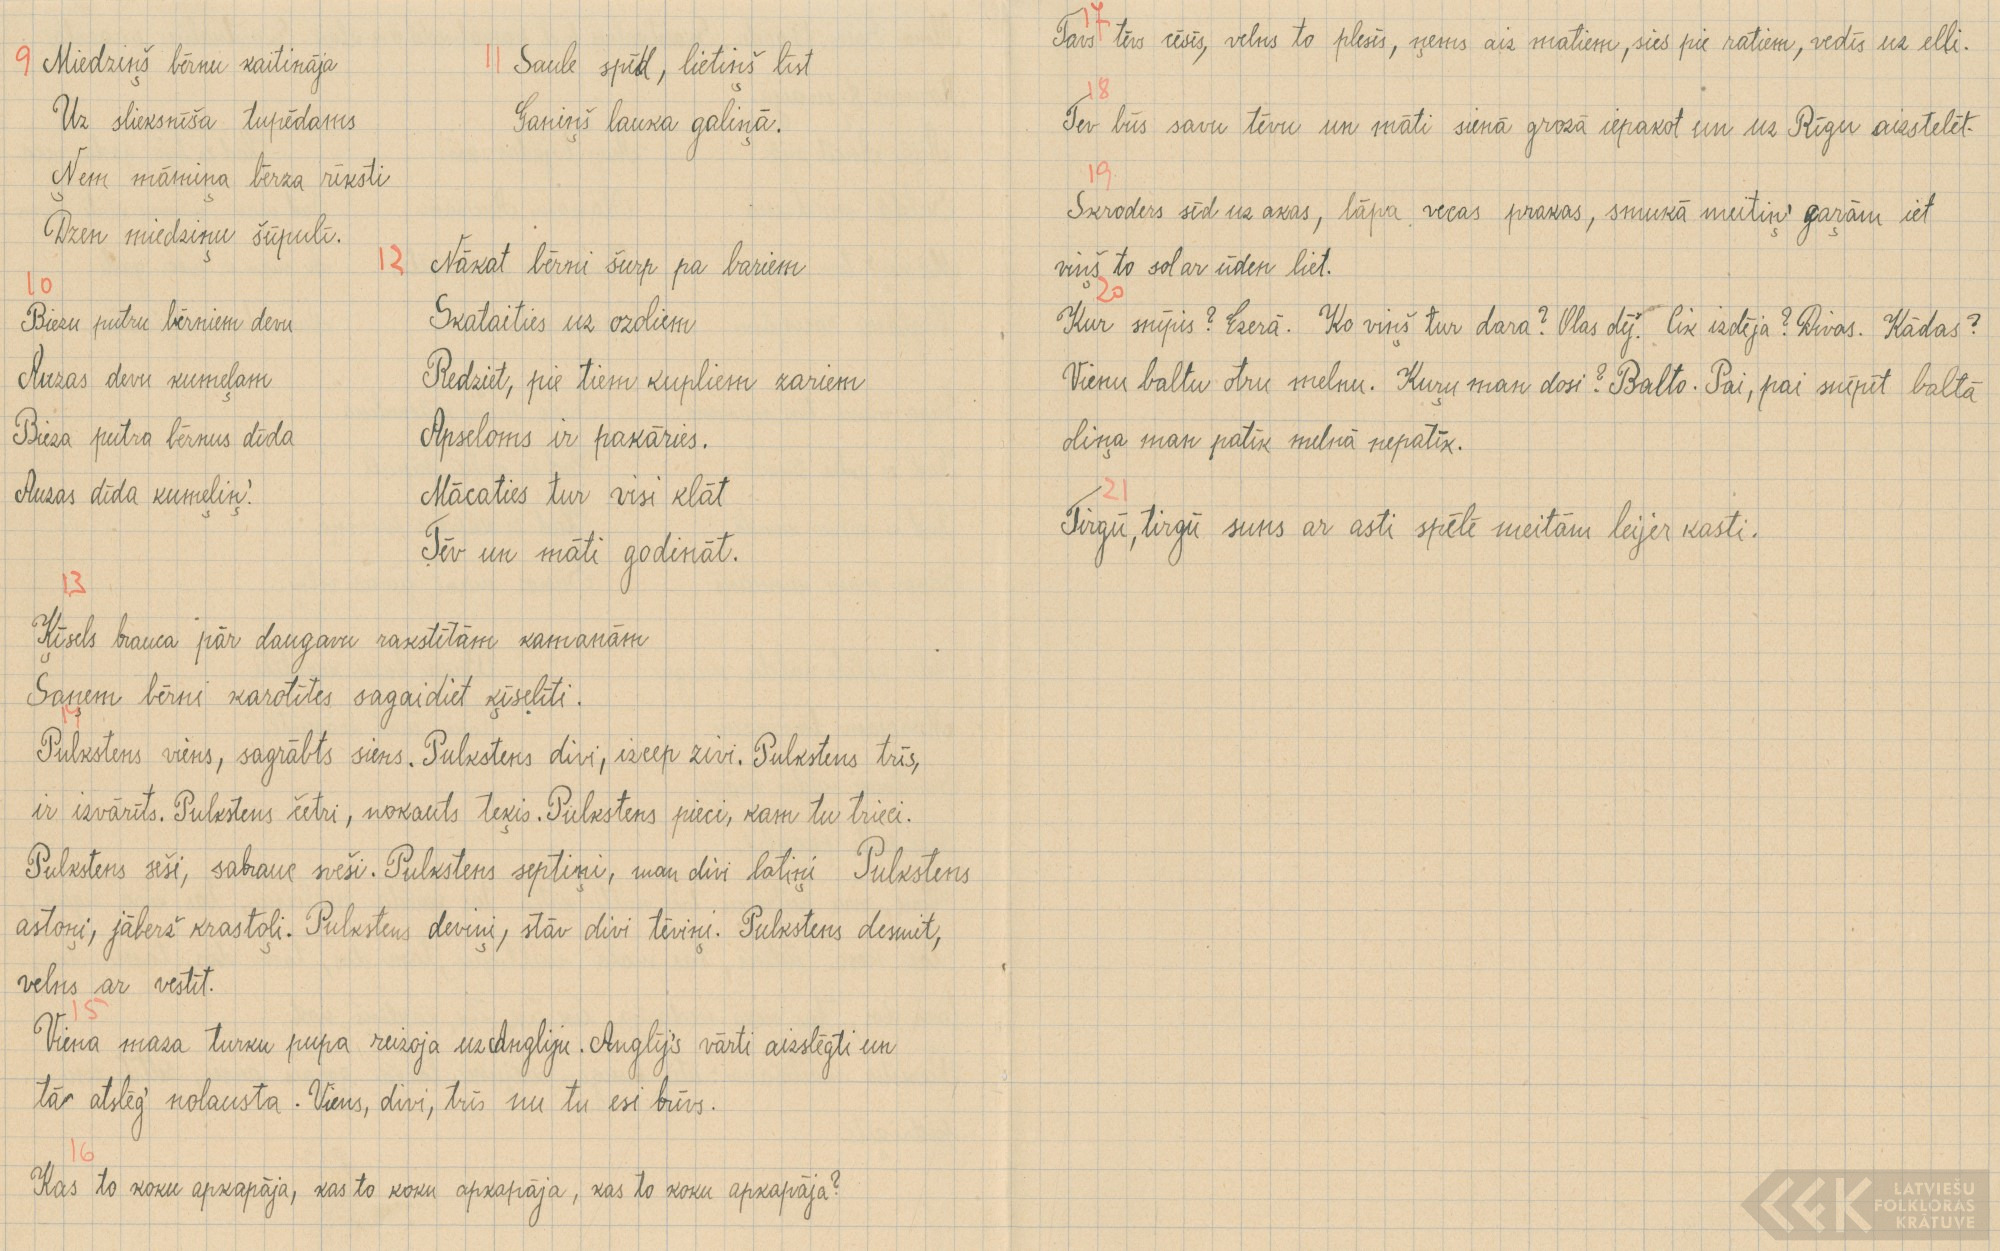 9 Miedziņš bērnu kaitināja
Uz slieksnīša tupēdams
Ņem māmiņa bērza rīksti
Dzen miedziņu šūpulī.
10
Biezu putru bērniem devu
Auzas devu kumeļam
Bieza putra bērnus dīda
Auzas dīda kumeliņ'.
11 Saule spīd, lietiņš līst
Ganiņš lauka galiņā.
12 Nākat bērni šurp pa bariem
Skataities uz ozoliem
Redziet, pie tiem kupliem zariem
Apseloms ir pakāries.
Mācaties tur visi klāt
Tēv un māti godināt.
13
Ķīsels brauca pār daugavu rakstītām kamanām
Saņem bērni karotītes sagaidiet ķīselīti.
14
Pulkstens viens, sagrābts siens. Pulkstens divi, izcep zivi. Pulkstens trīs,
ir izvārīts. Pulkstens četri, nokauts teķis. Pulkstens pieci, kam tu trieci.
Pulkstens seši, sabrauc sveši. Pulkstens septiņi, man divi latiņi Pulkstens
astoņi, jāberž krastoļi. Pulkstens deviņi, stāv divi tēviņi. Pulkstens desmit,
velns ar vestīt.
15
Viena maza turku pupa reizoja uz Angliju. Anglij's vārti aizslēgti un
tā atslēg' nolausta. Viens, divi, trīs nu tu esi brīvs.
16
Kas to koku apkapāja, kas to koku apkapāja, kas to koku apkapāja?
17
Tavs tēvs cēsīs, velns to plesīs, ņems aiz matiem, sies pie ratiem, vedīs uz elli.
18
Tev būs savu tēvu un māti sienā grozā iepakot un uz Rīgu aizstelēt.
19
Skroders sēd uz akas, lāpa vecas prakas, smukā meitiņ' gaŗām iet
viņš to solar ūden liet.
20
Kur snīpis? Ezerā. Ko viņš tur dara? Olas dēj. Cik izdēja? Divas. Kādas?
Vienu baltu otru melnu. Kuŗu man dosi? Balto. Pai, pai snīpīt baltā
oliņa man patīk melnā nepatīk.
21
Tirgū, tirgū suns ar asti spēlē meitām leijer kasti.
LATVIEŠU
FOLKLORAS
KRĀTUVE